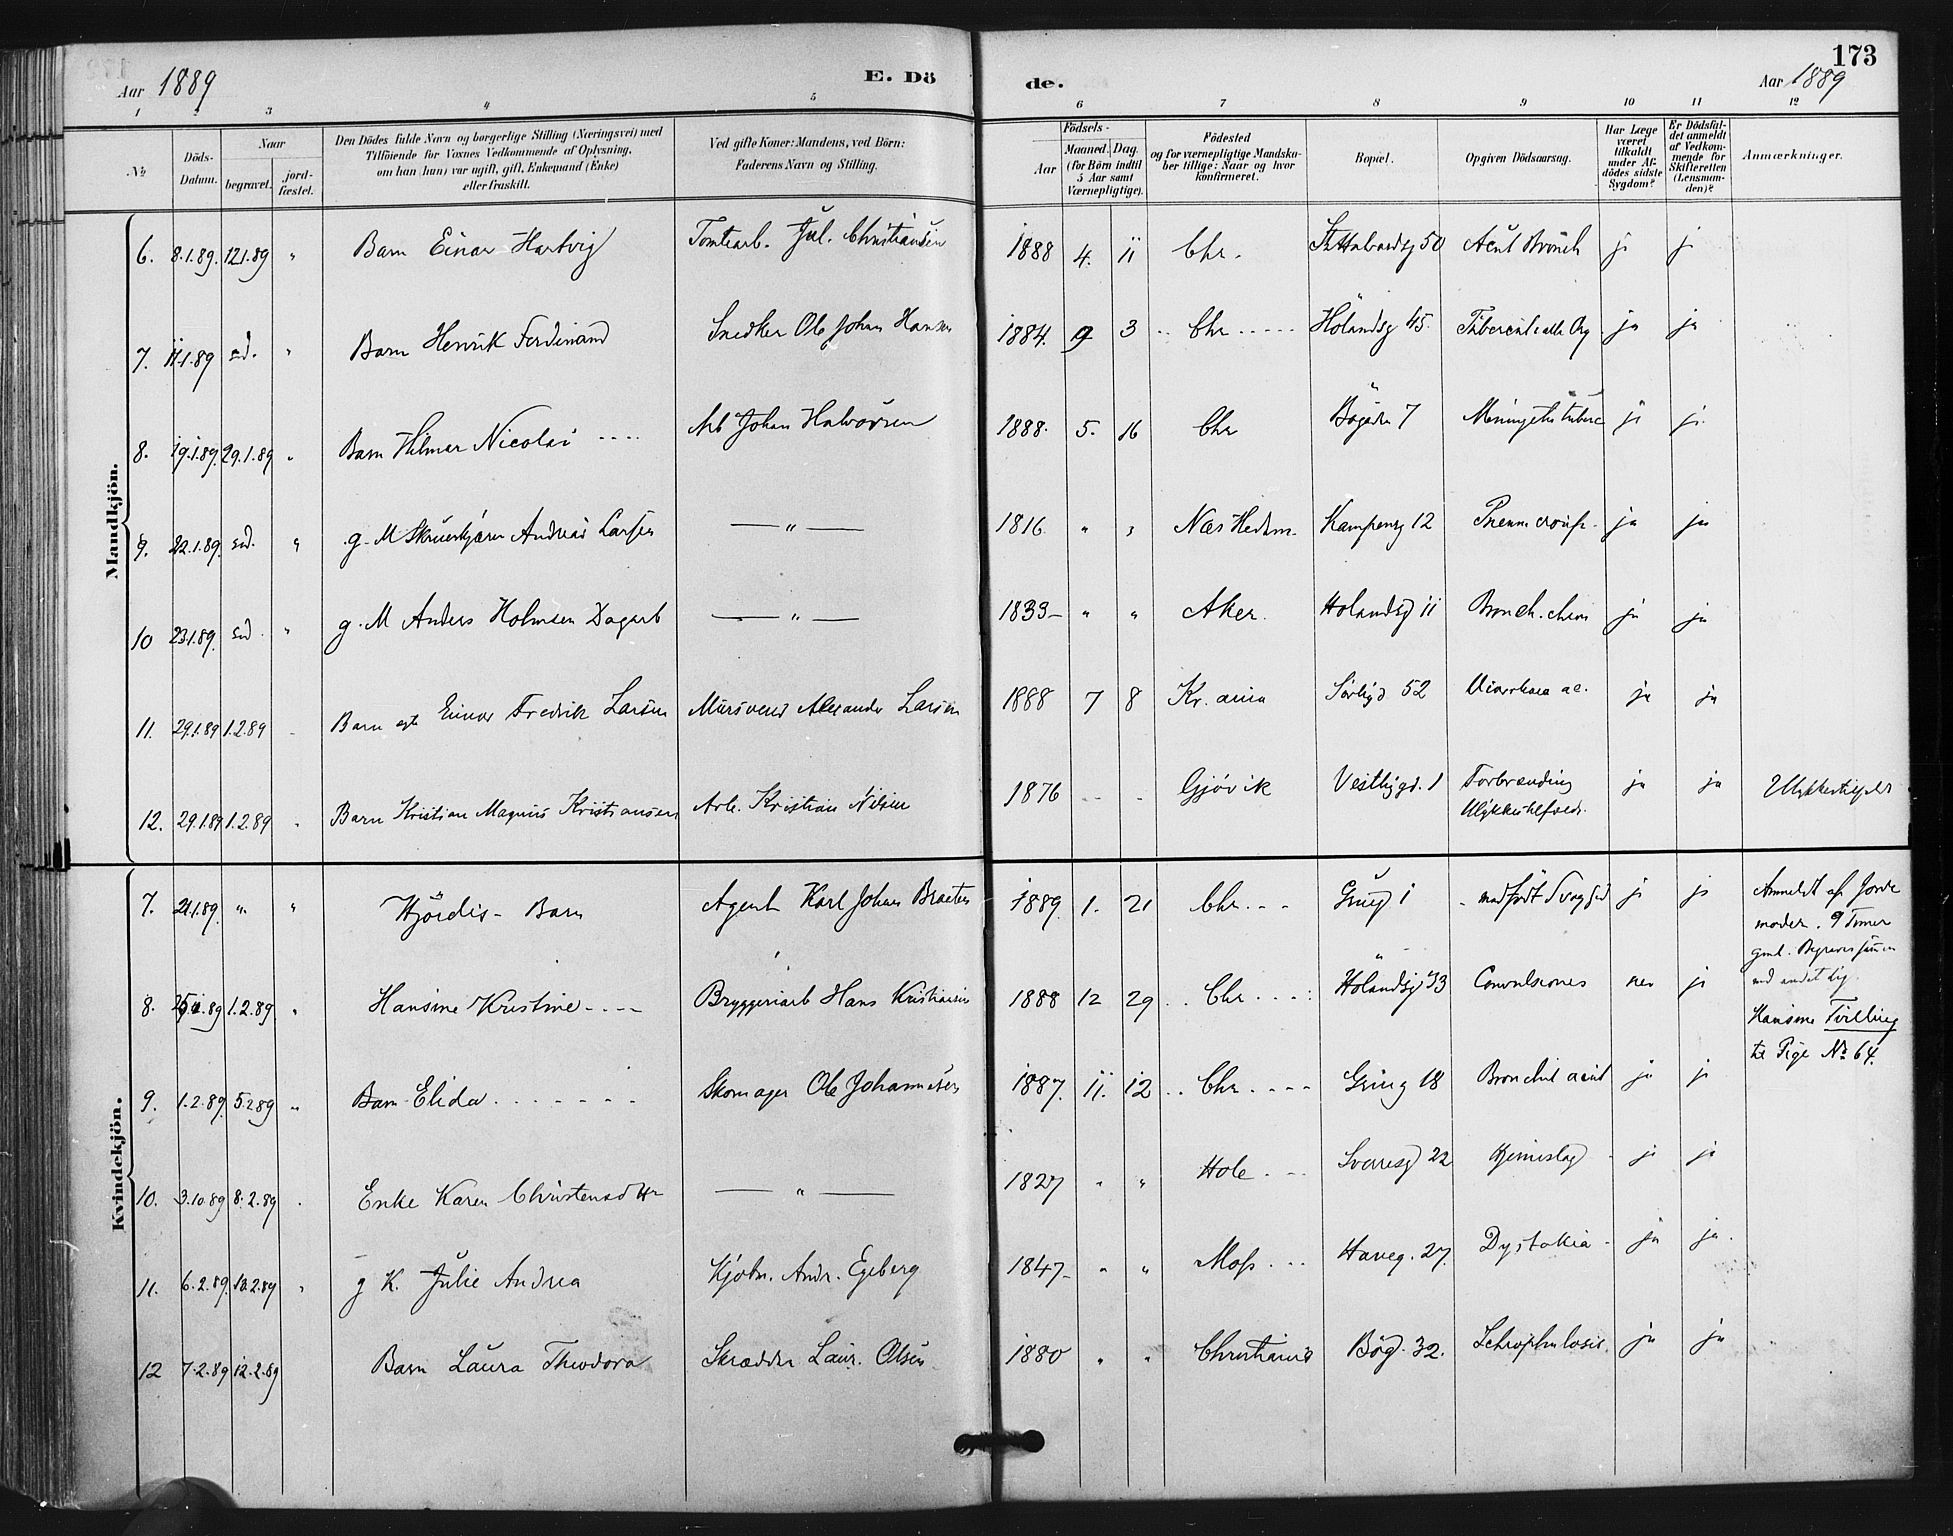 173
Aar 1889 E. Dö de. Aar 1889
1 2 3 4 5 6 7 8 9 10 11 12
№
Döds-Datum.
Naar
begravet.
jord-fæstet.
Den Dödes fulde Navn og borgerlige Stilling (Næringsvei) med
Tilföiende for Voxnes Vedkommende af Oplysning,
om han (hun) var ugift, gift, Enkemand (Enke)
eller fraskilt.
Ved gifte Koner: Mandens, ved Börn:
Faderens Navn og Stilling.
Födsels-
Aar
Maaned. Dag.
(for Börn indtil
5 Aar samt
Værnepligtige).
Födested
og for værnepligtige Mandska-
ber tillige: Naar og hvor
konfirmeret.
Bopæl.
Opgiven Dödsaarsag.
Har Læge
været
tilkaldt
under Af-
dödes sidste
Sygdom?
Er Dödsfal-
det anmeldt
af Vedkom-
mende for
Skifteretten
(Lensman-
den)?
Anmærkninger.
Mandkjön.
6. 8.1.89. 12.1.89 " Barn Einar Hartvig Tomtearb. Jul. Christiansen 1888 4. 11 Chr. St Halvardsg 50 Acut Bronch ja ja
7. 11.1.89 sd. " Barn Henrik Ferdinand Snedker Ole Johan Hansen 1884. 9 3 Chr Hölandsg 45. ja ja
8. 19.1.89. 29.1.89 " Barn Hilmar Nicolai Arb Johan Halvorsen 1888. 5. 16 Chr Bögaden 7 Meningitis tuberc ja ja
9. 22.1.89. sd. " g. M Andreas Larsen — " — 1816 " " Næs Hedem. Kampeng 12 croup. ja ja
10 23.1.89. sd. " g. M Anders Holmsen Dagarb — " — 1833 " " Aker. Hølandsg 11 Bronch. chron ja ja
11. 29.1.89 1.2.89 Barn egte Einar Fredrik Larsen Mursvend Alexander Larsen 1888 7 8 Kr.ania Sørligd 52 Diarrhoea ac. ja ja
12. 29.1.89 1.2.89 Barn Kristian Magnus Kristiansen Arb. Kristian Nilsen 1876 Gjøvik Vestbygd. 1 Forbrænding ja ja
Ulykkestilfælde.
Kvindekjön.
7. 21.1.89. " " Hjördis - Barn Agent Karl Johan Braaten 1889. 1. 21 Chr. Grüng 1 medfødt Svaghed ja ja Anmeldt af Jorde
moder. 9 Timer
gml.
med andet Lig.
8. 1.2.89. " Hansine Kristine Bryggeriarb Hans Kristiansen 1888 12 29 Chr Hölandsg 33 Convulsiones nei ja
Hansine Tvilling
til Pige № 64.
9. 1.2.89. 5.2.89 " Barn Elida Skomager Ole Johannesen 1887. 11. 12 Chr. Grüng 18 Bronchit acut ja ja
10. 3.10.89 8.2.89 Enke Karen Christensdttr — " — 1827 " " Hole Sverresg 22 Hjerneslag ja ja
11. 6.2.89. 10.2.89 " g K. Julie Andrea Kjøbm. Andr. Egeberg 1847 " " Moss Haveg. 27. Dystokia ja ja.
12 7.2.89. 12.2.89 Barn Laura Theodora Skrædder Laur. Olsen 1880 " " Christiania Bög. 32. Schrophulosis. ja ja